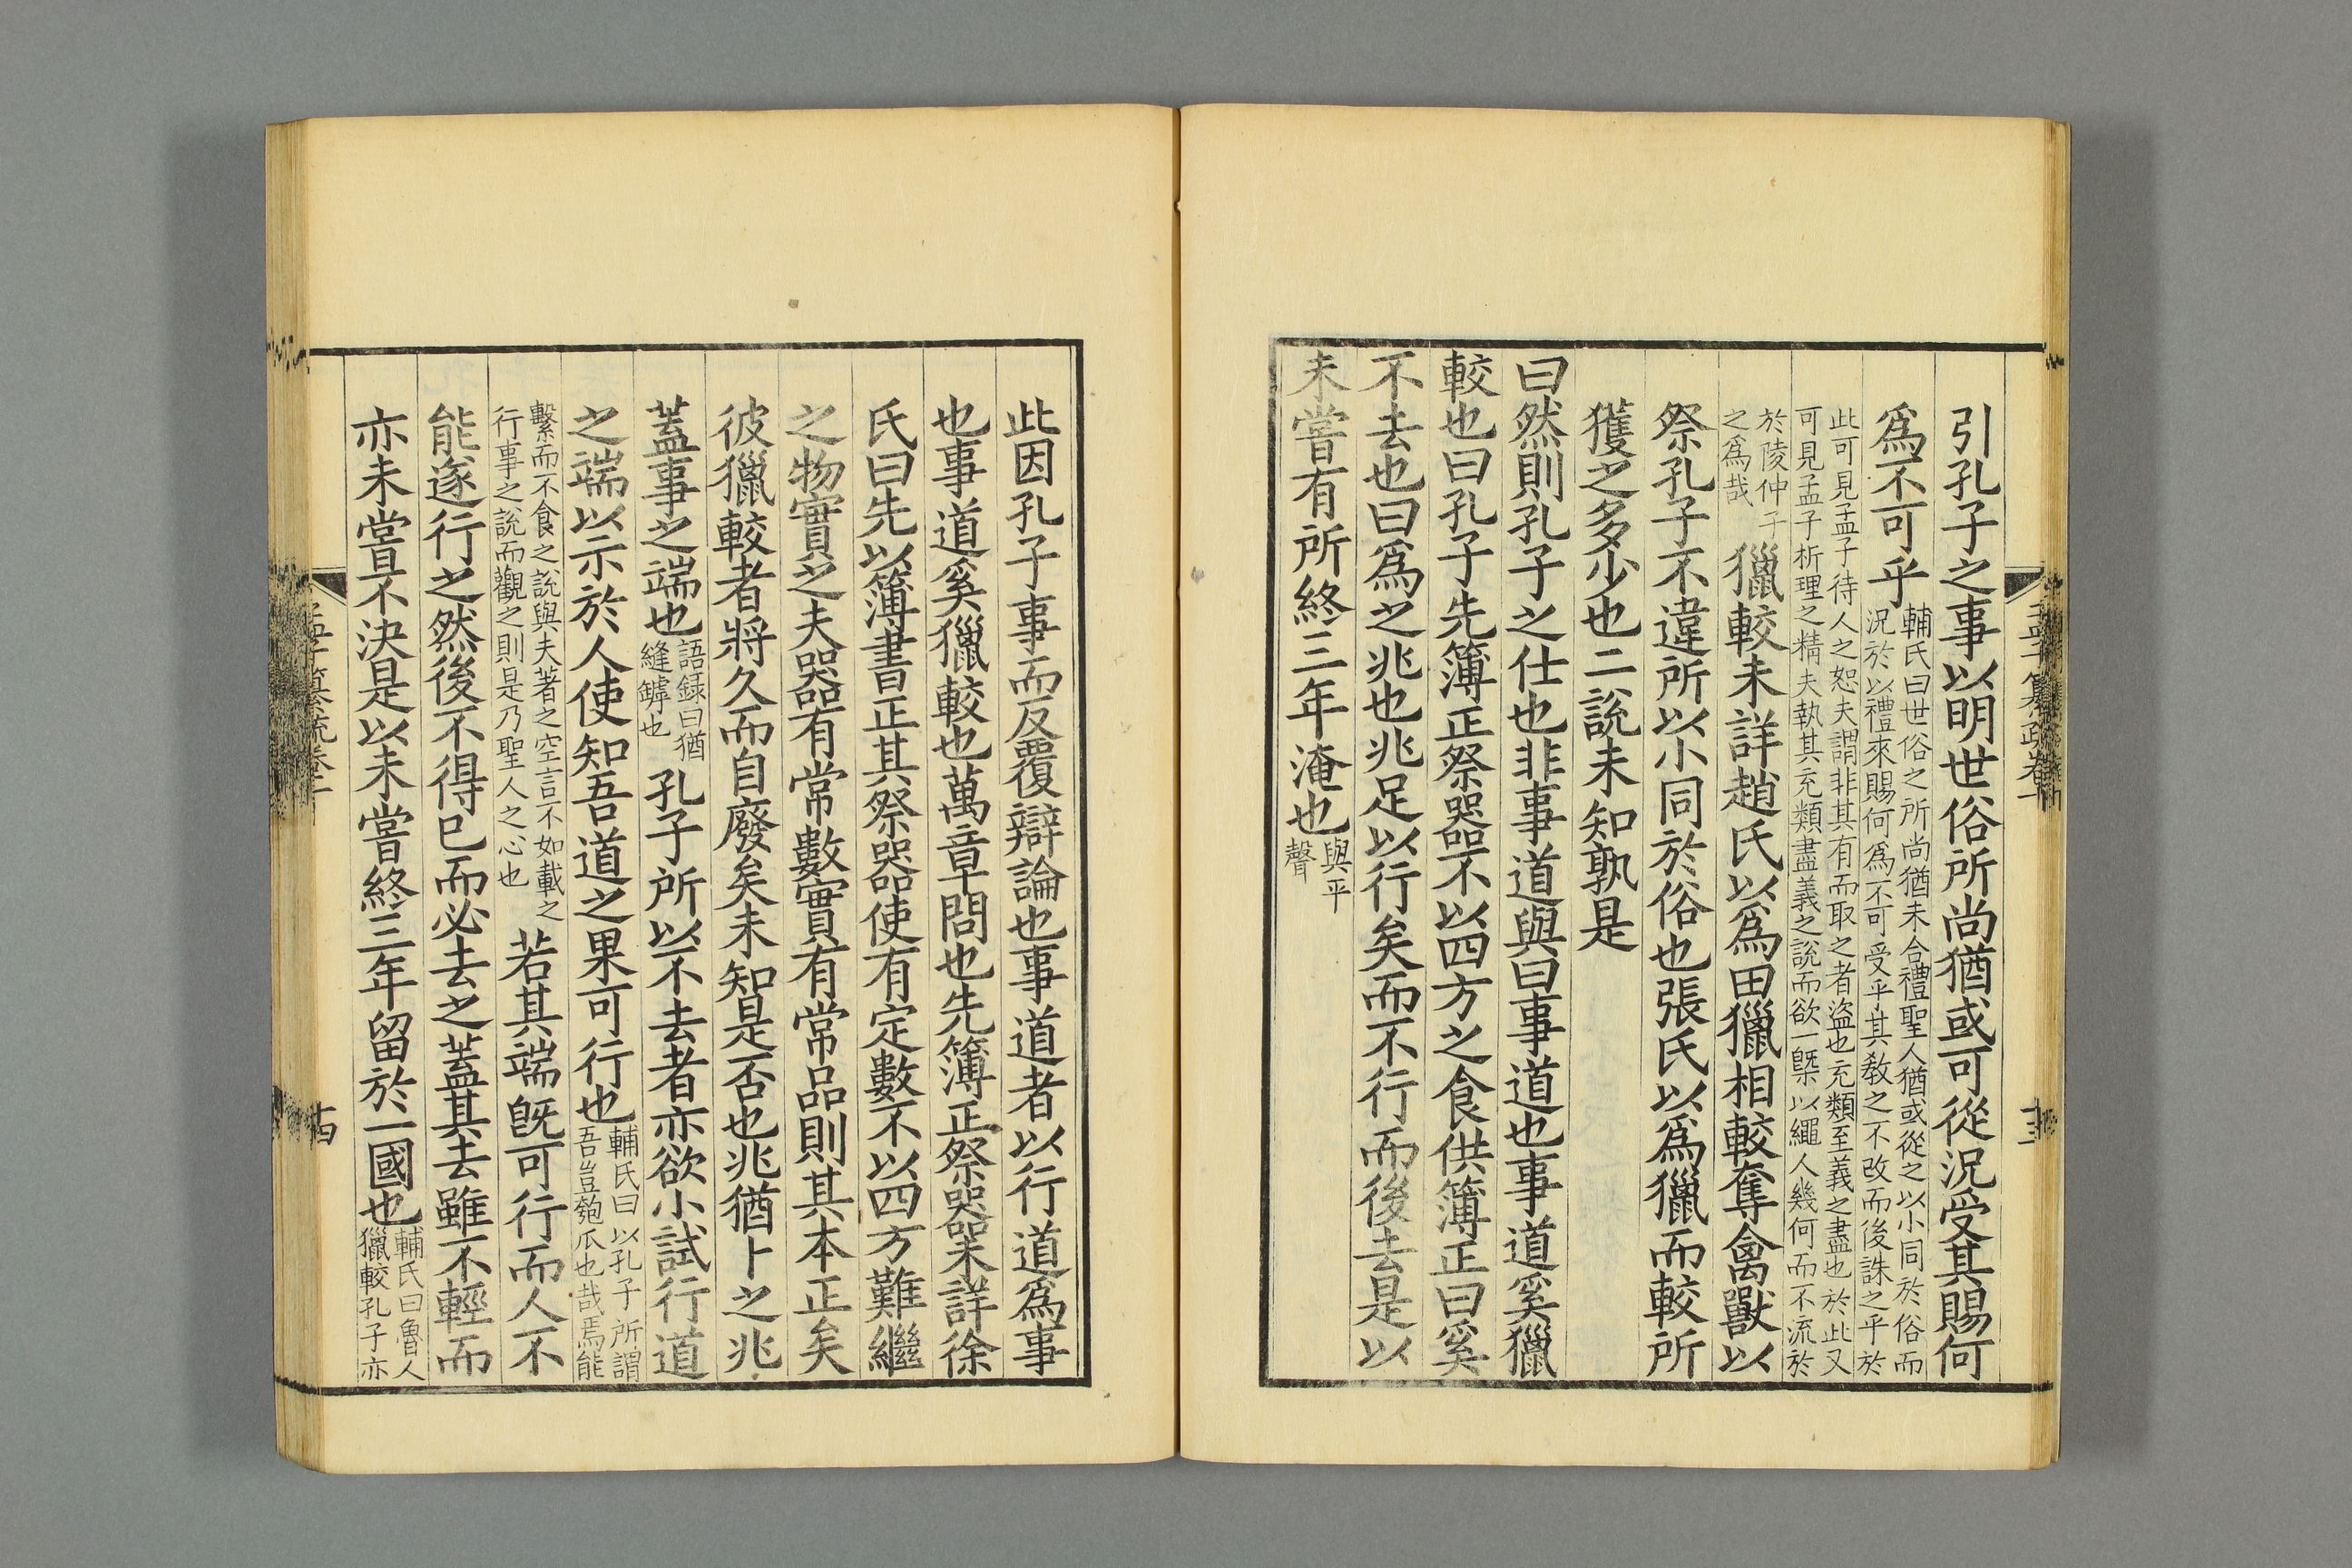 引孔子之事以明世俗所尚猶或可從況受其賜何
爲不可乎輔氏曰世俗之所尚猶未合禮聖人猶或從之以小同於俗而
況於以禮來賜何爲不可受乎其敎之不改而後誅之乎於
此可見孟子待人之恕夫謂非其有而取之者盜也充類至義之盡也於此又
可見孟子析理之精夫執其充類盡義之說而欲一槩以繩人幾何而不流於
於陵仲子
之爲哉
獵較未詳趙氏以爲田獵相較奪禽獸以
祭孔子不違所以小同於俗也張氏以爲獵而較所
獲之多少也二說未知孰是
曰然則孔子之仕也非事道與曰事道也事道奚獵
較也曰孔子先簿正祭器不以四方之食供簿正曰奚
不去也曰爲之兆也兆足以行矣而不行而後去是以
未嘗有所終三年淹也與平
聲
孟子纂疏卷十
十三
此因孔子事而反覆辯論也事道者以行道爲事
也事道奚獵較也萬章問也先簿正祭器未詳徐
氏曰先以簿書正其祭器使有定數不以四方難繼
之物實之夫器有常數實有常品則其本正矣
彼獵較者將久而自廢矣未知是否也兆猶卜之兆
蓋事之端也語錄曰猶
縫罅也
孔子所以不去者亦欲小試行道
之端以示於人使知吾道之果可行也輔氏曰以孔子所謂
吾豈匏瓜也哉焉能
繫而不食之說與夫著之空言不如載之
行事之說而觀之則是乃聖人之心也
若其端旣可行而人不
能遂行之然後不得已而必去之蓋其去雖不輕而
亦未嘗不決是以未嘗終三年留於一國也輔氏曰魯人
獵較孔子亦
十四